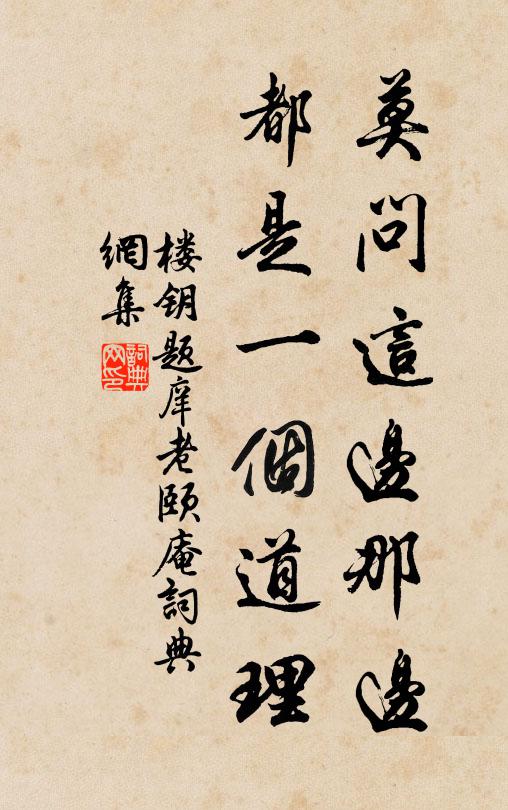 莫問這邊那邊
都是一個道理
楼钥题庠老颐庵詞典
網集
詞典網印